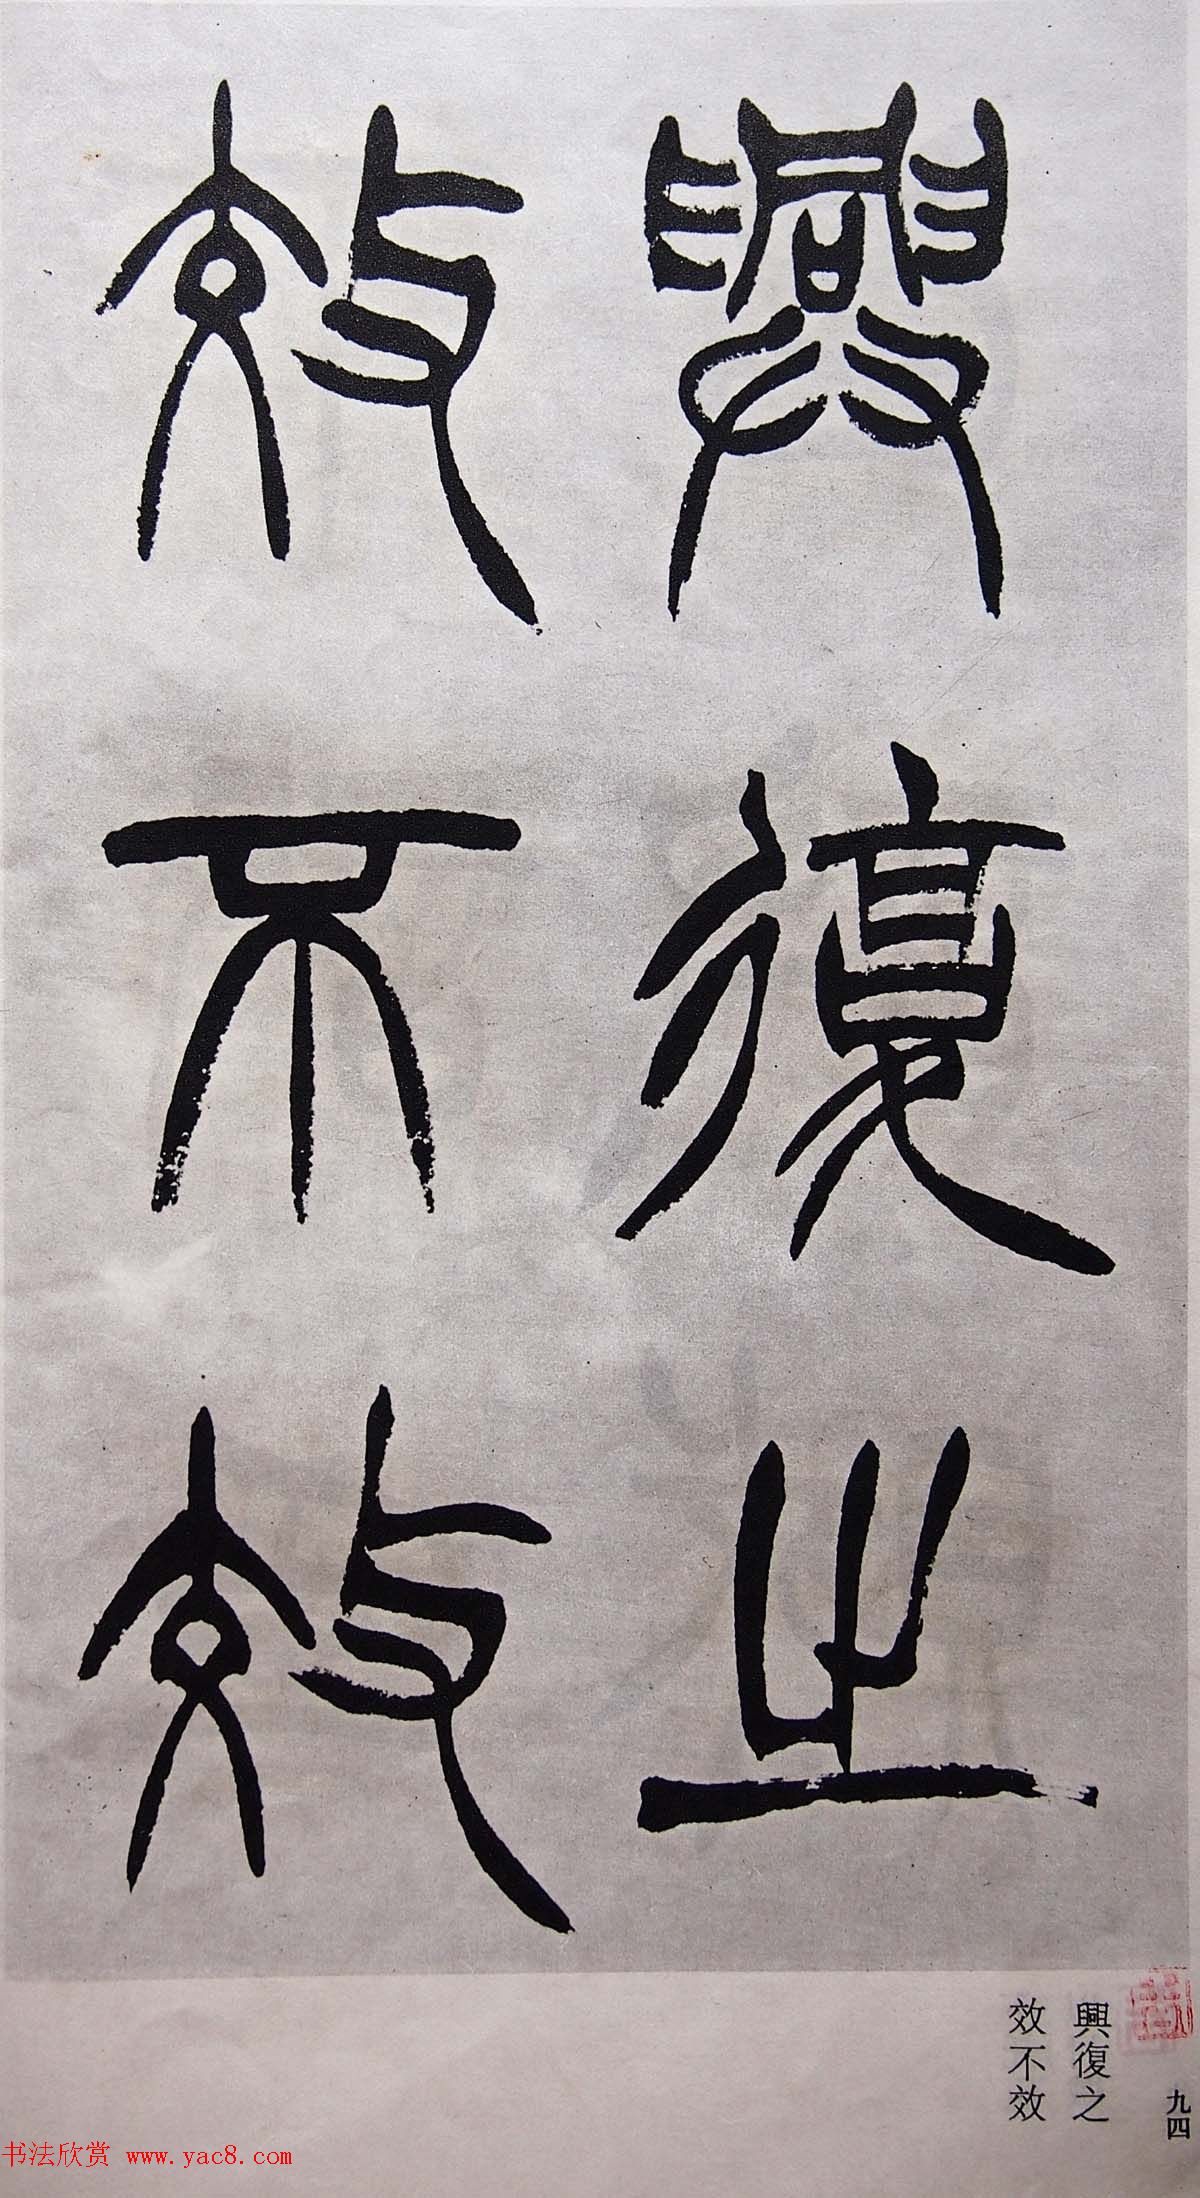 興復之
效不效
興復之
效不效
九四
书法欣赏 www.yac8.com